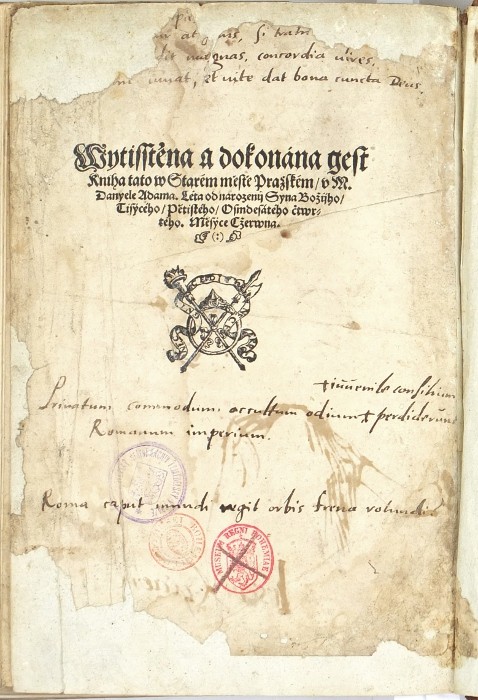 at si
magnas, concordia vires,
et vite dat bona cuncta Deus.
Wytisstěna a dokonána gest
Kniha tato w Starém městě Pražském/ v M.
Danyele Adama. Léta od narozenij Syna Božijho/
Tisýcého/ Pětistého/ Osmdesátého čtwr-
tého. Měsýce Cžerwna.
(:)
consilium
Privatum commodum occultum odium perdiderunt
Romanum imperium.
Roma caput mundi regit orbis frena rotundi.
MUSEUM REGNI BOHEMIAE